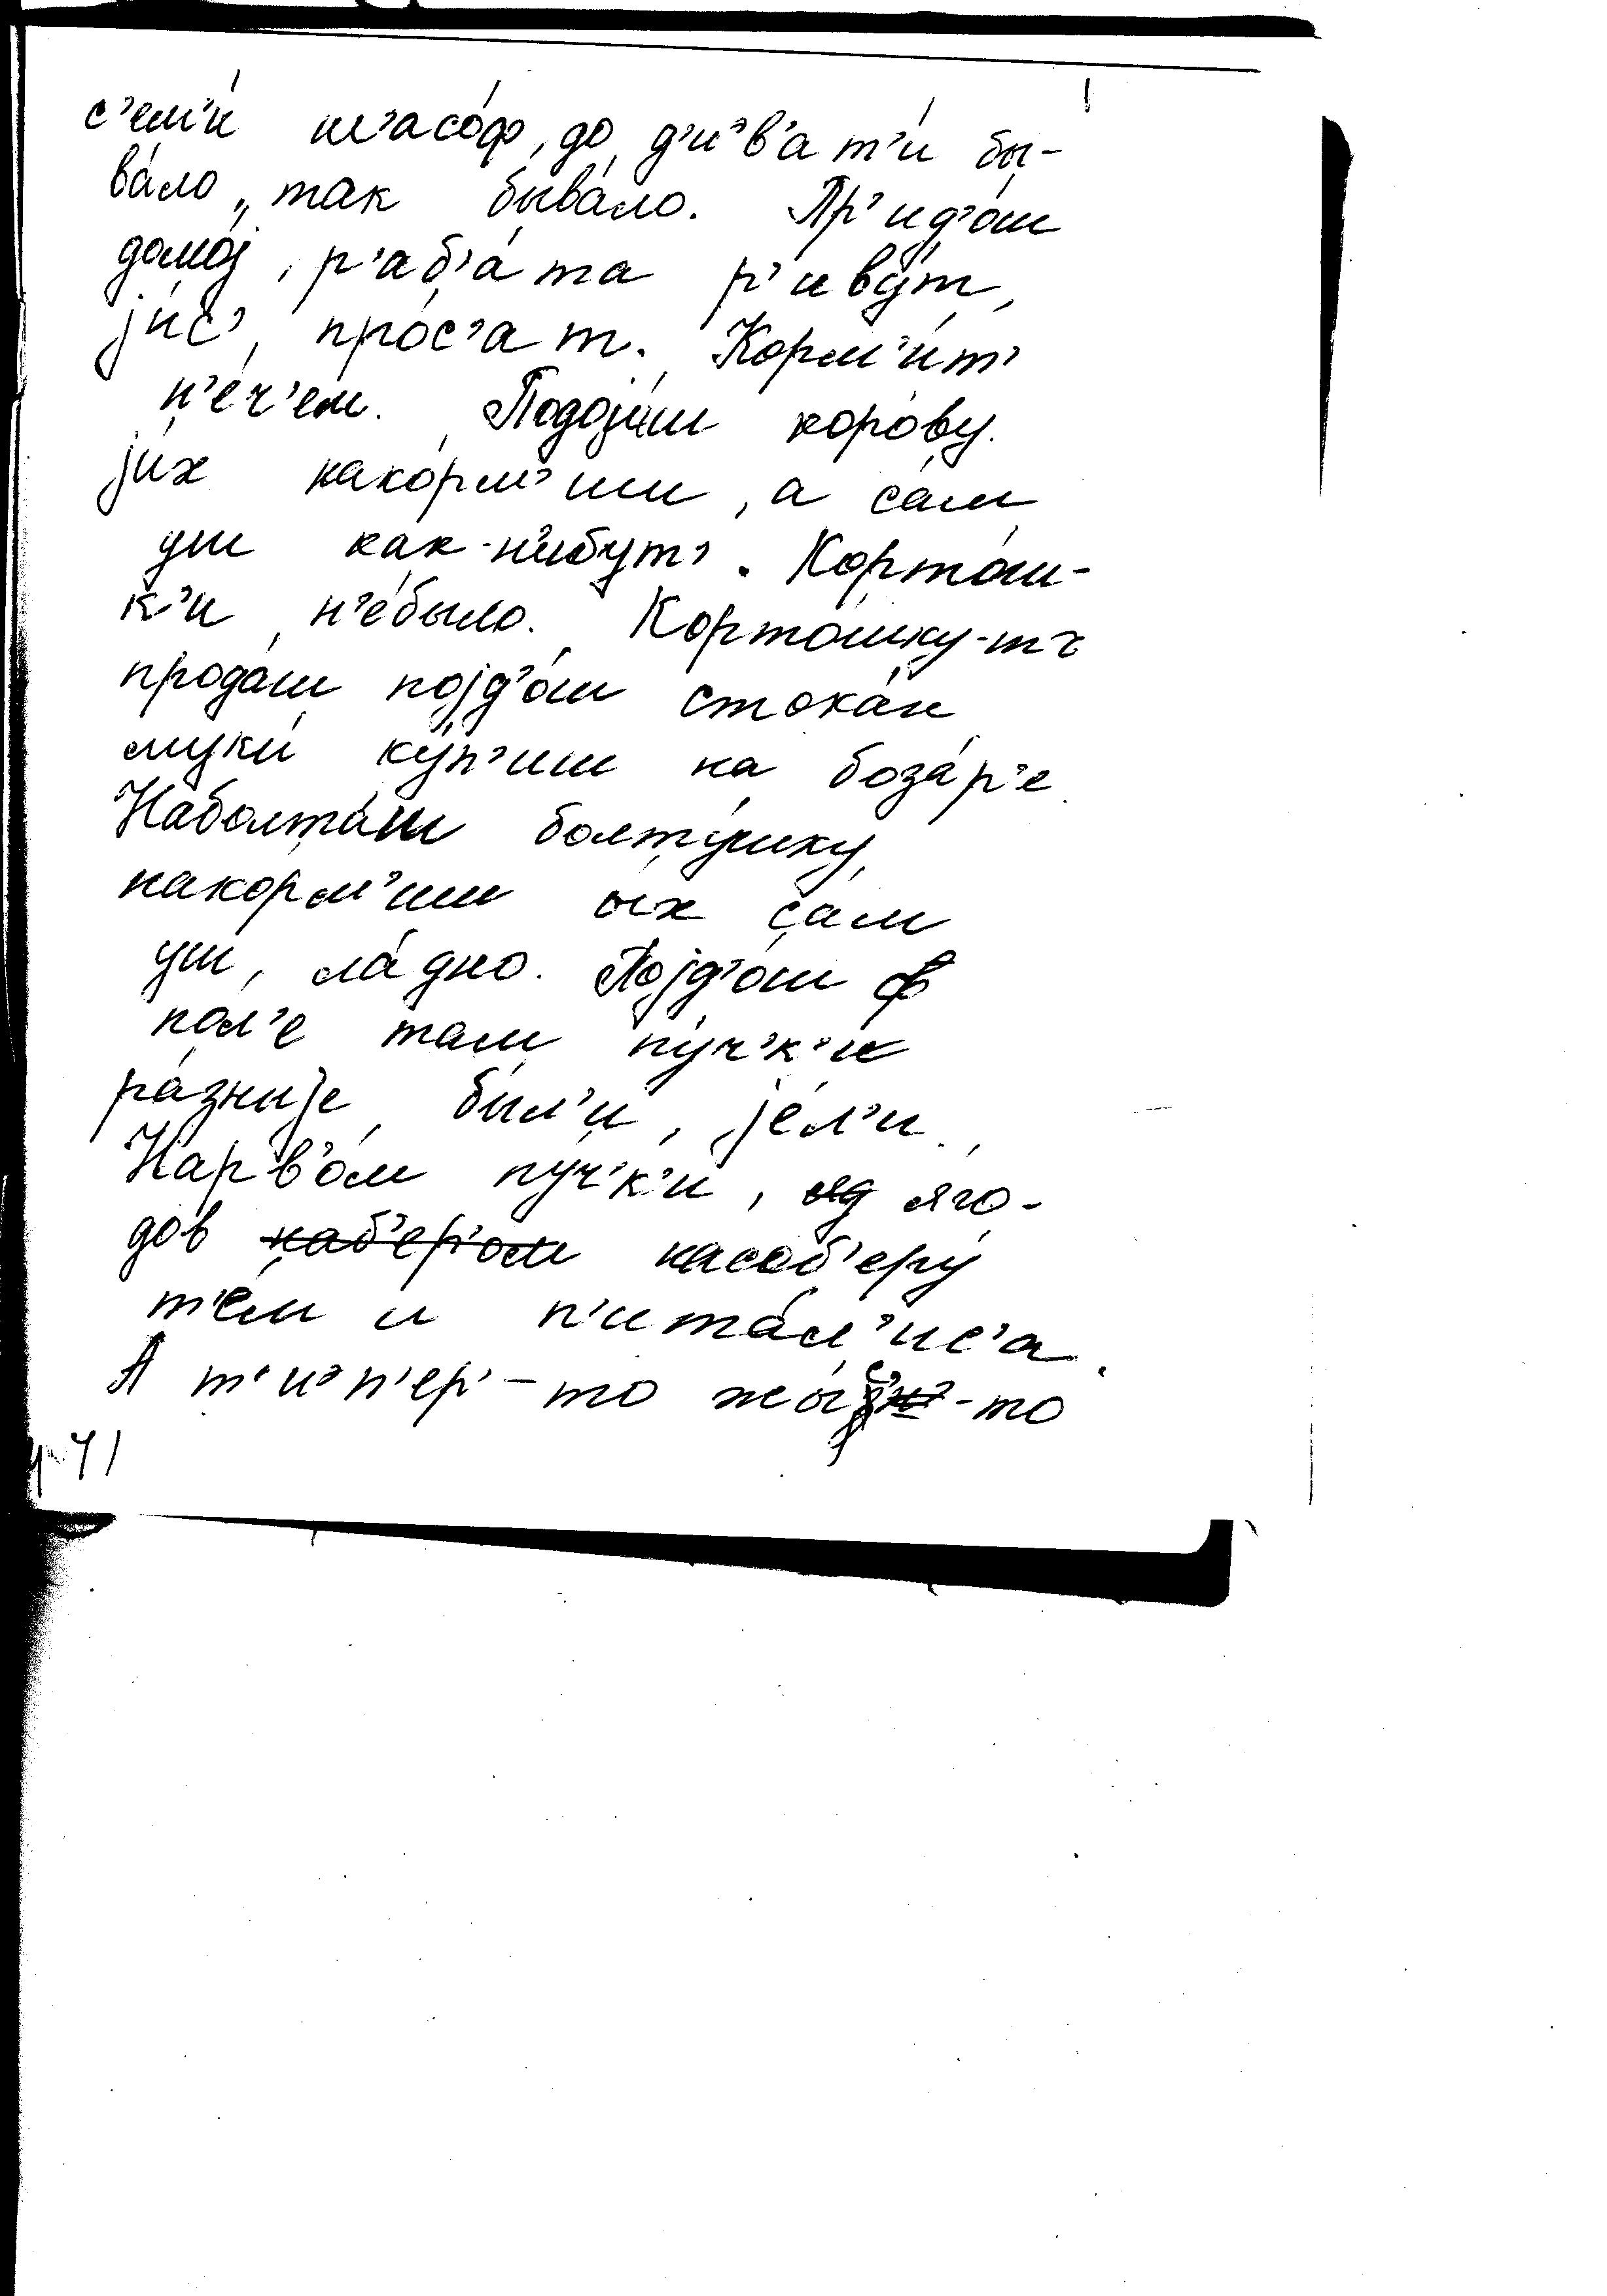 с'ем'и́ ш'асо́ф, до д'иэв'а т'и́ бы-
ва́ло, так быва́ло. Пр'ид'о́ш
домо́j, р'аб'а́та р'иву́т,
jис', про́с'ат. Корм'и́т'
н'е́ч'ем. Подоjи́ш коро́ву.
jих нако́рм'иш, а сам
уш как-н'ибут'. Корто́ш-
к'и н'е́было. Корто́шку-тъ
прода́ш поjд'о́ш стока́н
муки́ ку́п'иш на боза́р'е.
Наболта́ш болту́шку,
накорм'иш ых сам
уш, ла́дно. Поjд'о́ш ф
пол'е там пу́ч'к'и
ра́зныjе бы́л'и, jе́л'и.
Нарв'о́м пу́ч'к'и, яд яго-
дов наб'ер'ом насоб'еру́
т'ем и п'ита́л'ис'а.
А т'иэп'ер'-то жы́з'н'-то